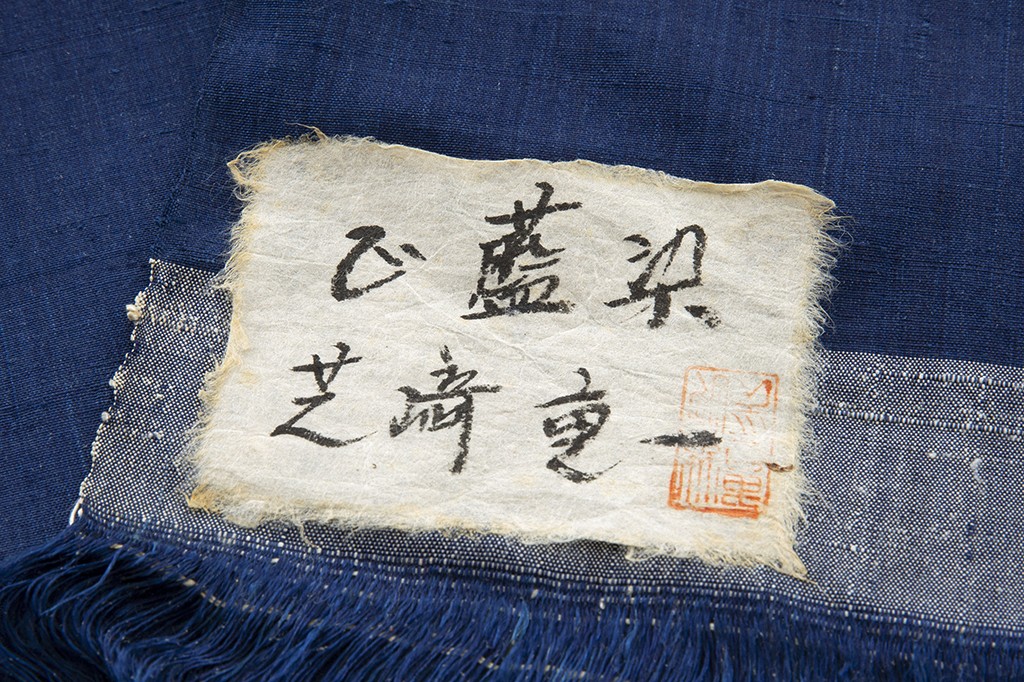 正藍染
芝崎重一